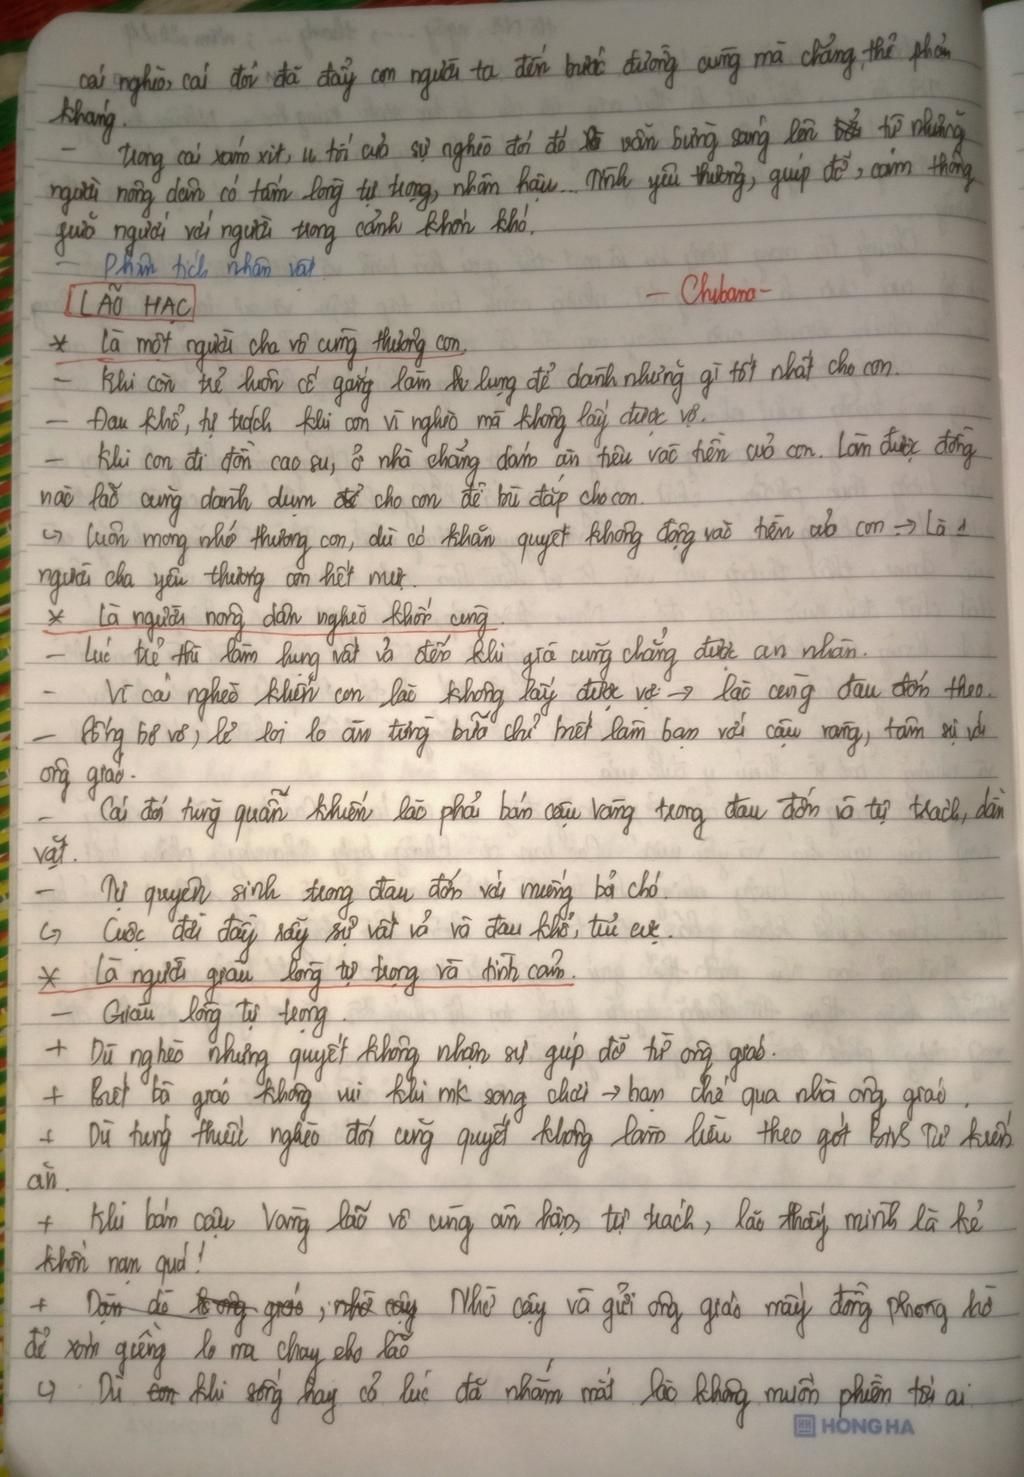 cái nghèo, cái đói đã đẩy con người ta đến bước đường cùng mà chẳng thể phản
kháng.
- Trong cái xám xịt, u tối của sự nghèo đói đó vẫn bừng sáng lên từ những
người nông dân có tấm lòng tự trọng, nhân hậu... Tình yêu thương, giúp đỡ, cảm thông
giữa người với người trong cảnh khốn khó.
- Phân tích nhân vật
LÃO HẠC - Chibana -
* Là một người cha vô cùng thương con.
- Khi còn trẻ luôn cố gắng làm lụng để dành những gì tốt nhất cho con.
- Đau khổ, tự trách khi con vì nghèo mà không lấy được vợ.
- Khi con đi đồn cao su, ở nhà chẳng dám ăn tiêu vào tiền của con. Làm được đồng
nào lão cũng dành dụm cho con để bù đắp cho con.
↪ Luôn mong nhớ thương con, dù có khăn quyết không động vào tiền của con → Là 1
người cha yêu thương con hết mực.
* Là người nông dân nghèo khốn cùng.
- Lúc trẻ thì làm lụng vất vả đến khi già cũng chẳng được an nhàn.
- Vì cái nghèo khiến con lão không lấy được vợ → lão cũng đau đớn theo.
- Sống bơ vơ, lẻ loi lo ăn từng bữa chỉ biết làm bạn với cậu vàng, tâm sự với
ông giáo.
- Cái đói túng quẫn khiến lão phải bán cậu vàng trong đau đớn và tự trách, dằn
vặt.
- Tự quyên sinh trong đau đớn với miếng bả chó.
↪ Cuộc đời đầy sự vất vả và đau khổ, tủi cực.
* Là người giàu lòng tự trọng và tình cảm.
- Giàu lòng tự trọng.
+ Dù nghèo nhưng quyết không nhận sự giúp đỡ từ ông giáo.
+ Biết bà giáo không vui khi mk sang chơi → hạn chế qua nhà ông giáo.
+ Dù túng thiếu nghèo đói cũng quyết không làm liều theo gót Binh Tư kiếm
ăn.
+ Khi bán cậu Vàng lão vô cùng ân hận, tự trách, lão thấy mình là kẻ
khốn nạn quá!
+ Nhờ cậy và gửi ông giáo mấy đồng phòng hờ
để xóm giềng lo ma chay cho lão
↪ Dù khi sống hay cả lúc đã nhắm mắt lão không muốn phiền tới ai
HONG HA